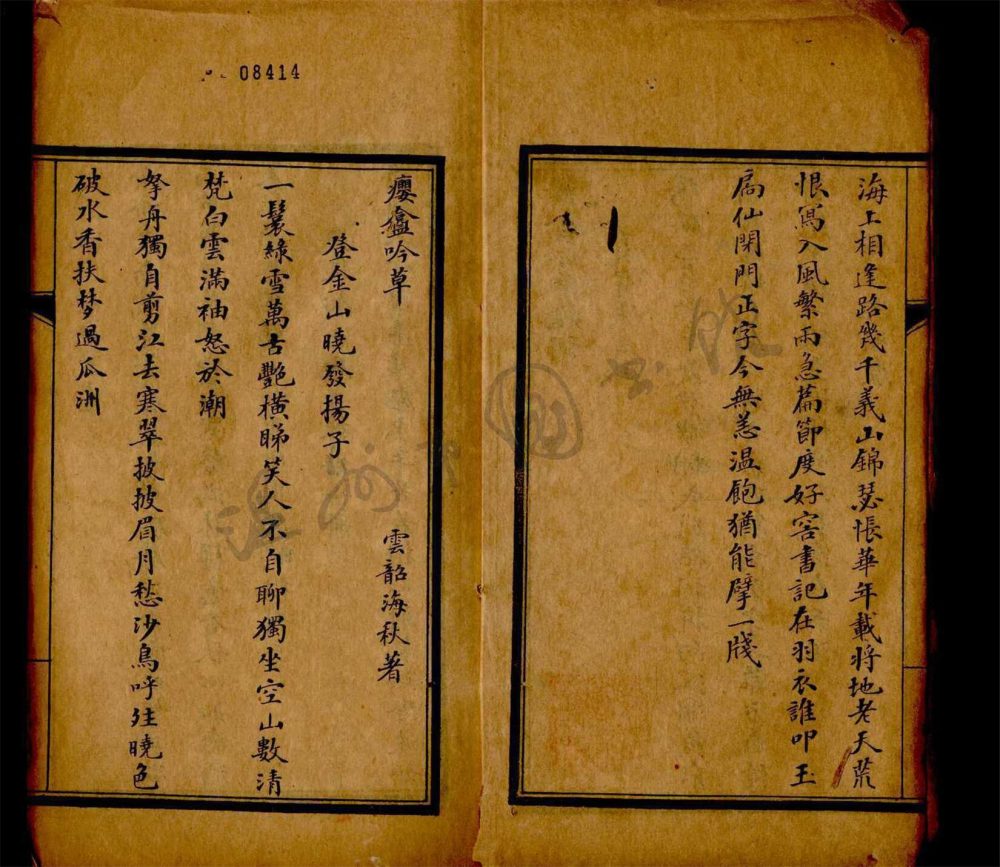 海上相逢路幾千義山錦瑟悵華年載將地老天荒
恨寫入風繁雨急篇節度好客書記在羽衣誰叩玉
扃仙閉門正字今無恙温飽猶能擘一牋
08414
癭盦吟草
雲韶海秋著
登金山曉發揚子
一鬟綠雪萬古艷橫睇笑人不自聊獨坐空山數清
梵白雲滿袖怒於潮
拏舟獨自剪江去寒翠披披眉月愁沙鳥呼殘曉色
破水香扶梦過瓜洲